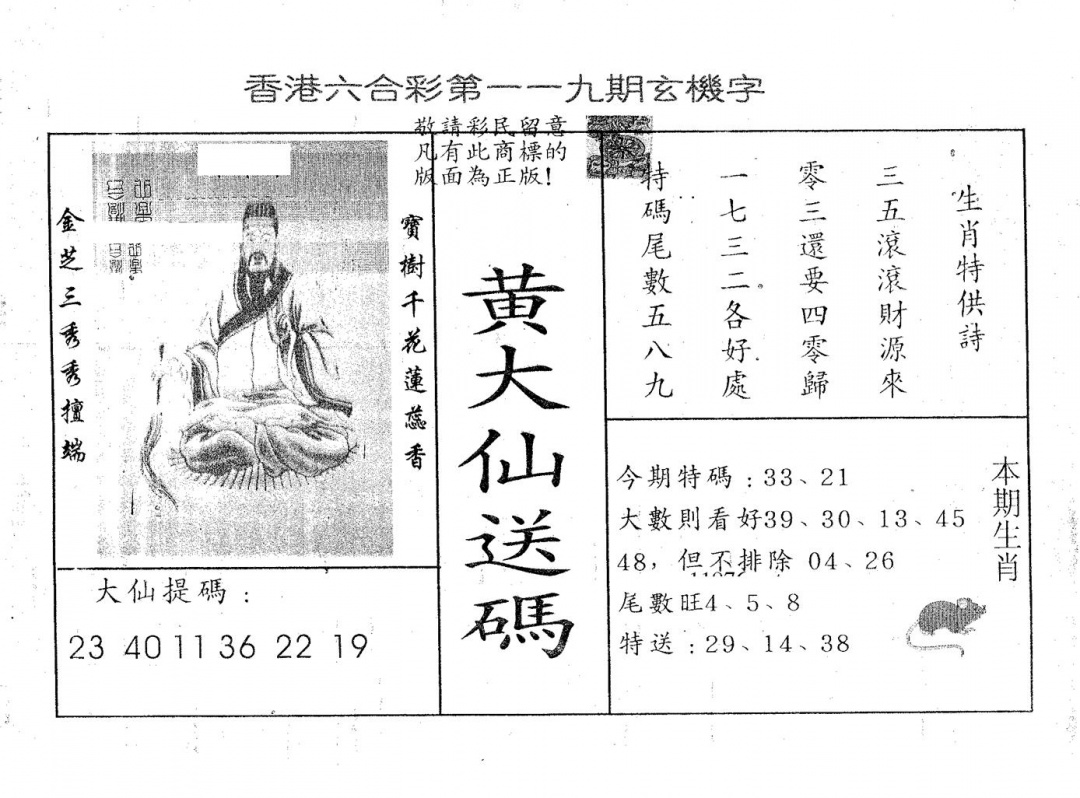 香港六合彩第一一九期玄機字
敬請彩民留意
凡有此商標的
版面為正版!
金芝三秀秀擅端
寶樹千花蓮蕊香
大仙提碼:
23 40 11 36 22 19
黃大仙送碼
生肖特供詩
三五滾滾財源來
零三還要四零歸
一七三二各好處
特碼尾數五八九
本期生肖
今期特碼:33、21
大數則看好39、30、13、45
48,但不排除 04、26
尾數旺4、5、8
特送:29、14、38